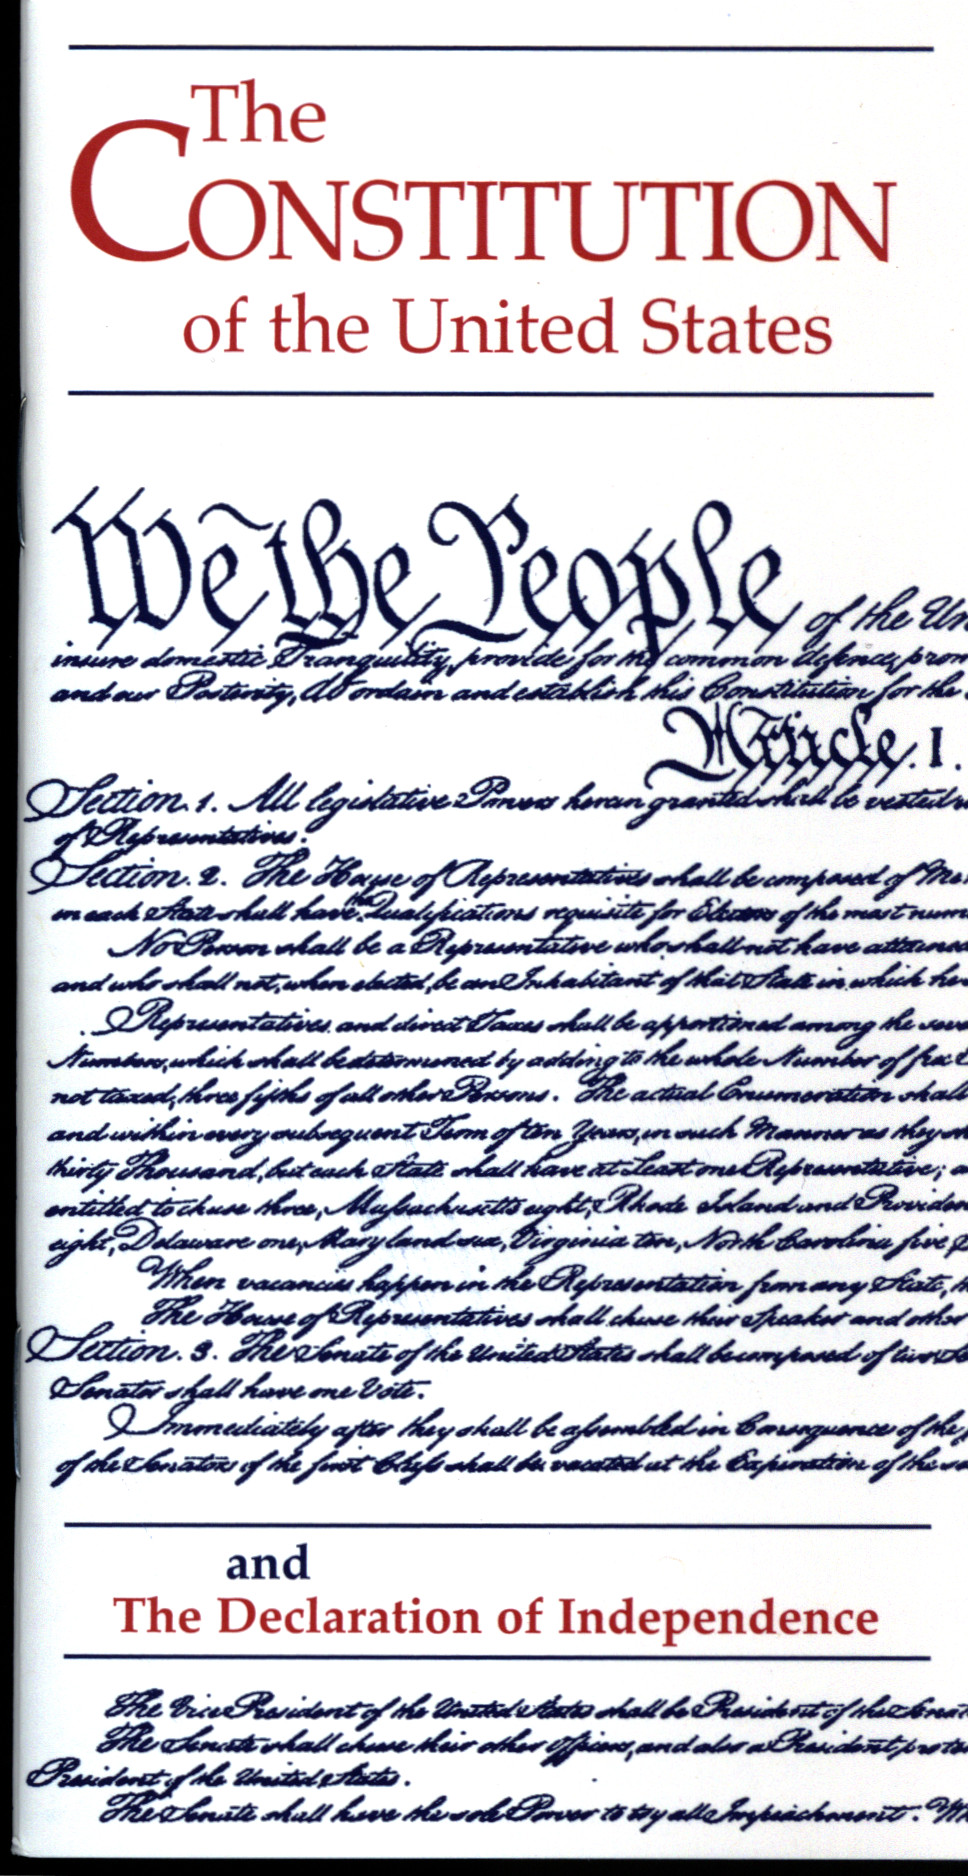 The
CONSTITUTION
of the United States
We the People of the Un
insure domestic Tranquility, provide for the common defence, prom
and our Posterity, do ordain and establish this Constitution for the
Article. I.
Section. 1. All legislative Powers herein granted shall be vested
of Representatives.
Section. 2. The House of Representatives shall be composed of Me
in each State shall have the Qualifications requisite for Electors of the most num
No Person shall be a Representative who shall not have attained
and who shall not, when elected, be an Inhabitant of that State in which he
Representatives and direct Taxes shall be apportioned among the seve
Numbers, which shall be determined by adding to the whole Number of free
not taxed, three fifths of all other Persons. The actual Enumeration shall
and within every subsequent Term of ten Years, in such Manner as they sh
thirty Thousand, but each State shall have at Least one Representative; a
entitled to chuse three, Massachusetts eight, Rhode Island and Providen
eight, Delaware one, Maryland six, Virginia ten, North Carolina five,
When vacancies happen in the Representation from any State, th
The House of Representatives shall chuse their Speaker and other
Section. 3. The Senate of the United States shall be composed of two Se
Senator shall have one Vote.
Immediately after they shall be assembled in Consequence of the
of the Senators of the first Class shall be vacated at the Expiration of the se
and
The Declaration of Independence
The Vice President of the United States shall be President of the Senat
The Senate shall chuse their other Officers, and also a President pro tem
President of the United States.
The Senate shall have the sole Power to try all Impeachments. Wh